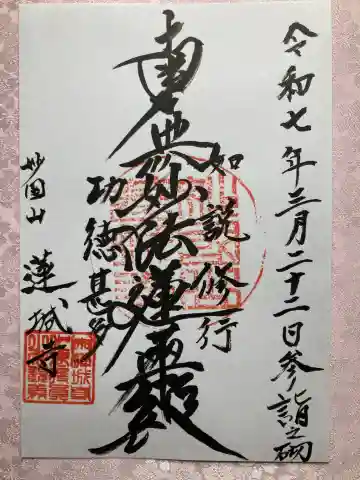 令和七年三月二十二日参詣之砌
如説修行
南無妙法蓮華経
功徳甚多
妙国山
蓮城寺